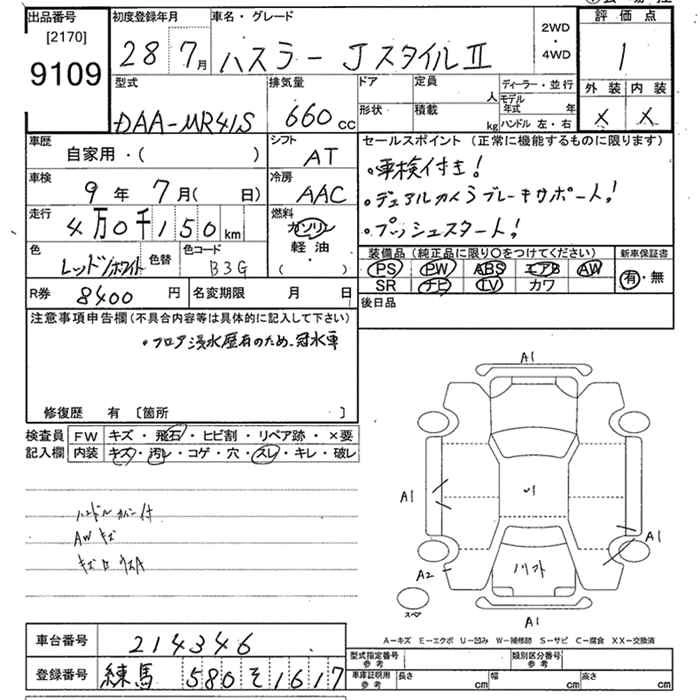 出品番号
[2170]
9109
初度登録年月
28 7月
車名・グレード
ハスラー JスタイルⅡ
2WD
・
4WD
評価点
1
外装 内装
× ×
型式
DAA-MR41S
排気量
660 cc
ドア
形状
定員 人
積載 kg
ディーラー・並行
モデル年式 年
ハンドル 左・右
車歴
自家用・( )
シフト
AT
車検
9年 7月( 日)
冷房
AAC
走行
4万0千150km
燃料
ガソリン
軽油
( )
色
レッド/ホワイト
色替
色コード
B3G
R券 8400円
名変期限 月 日
セールスポイント (正常に機能するものに限ります)
・車検付き!
・デュアルカメラブレーキサポート!
・プッシュスタート!
装備品(純正品に限り〇をつけてください)
PS PW ABS エアB AW
SR ナビ TV カワ
新車保証書
有・無
後日品
注意事項申告欄(不具合内容等は具体的に記入して下さい)
・フロア浸水歴有のため、冠水車
修復歴 有 〔箇所 〕
検査員
記入欄
FW キズ・飛石・ヒビ割・リペア跡・×要
内装 キズ・汚レ・コゲ・穴・スレ・キレ・破レ
ハンドルカバー付
AWキズ
A1
A1
A1
A2
リフト
スペア
A1
A-キズ E-エクボ U-凹み W-補修跡 S-サビ C-腐食 XX-交換済
車台番号 214346
登録番号 練馬 580 そ 1617
型式指定番号
参考
類別区分番号
参考
車庫証明用
参考
長さ cm 幅 cm 高さ cm